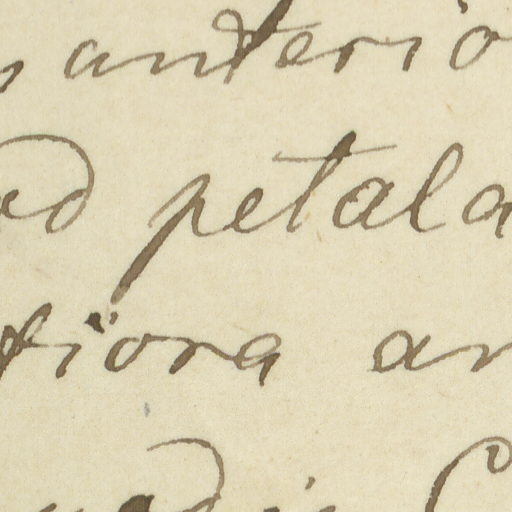 anterio
ad petala
tiora an